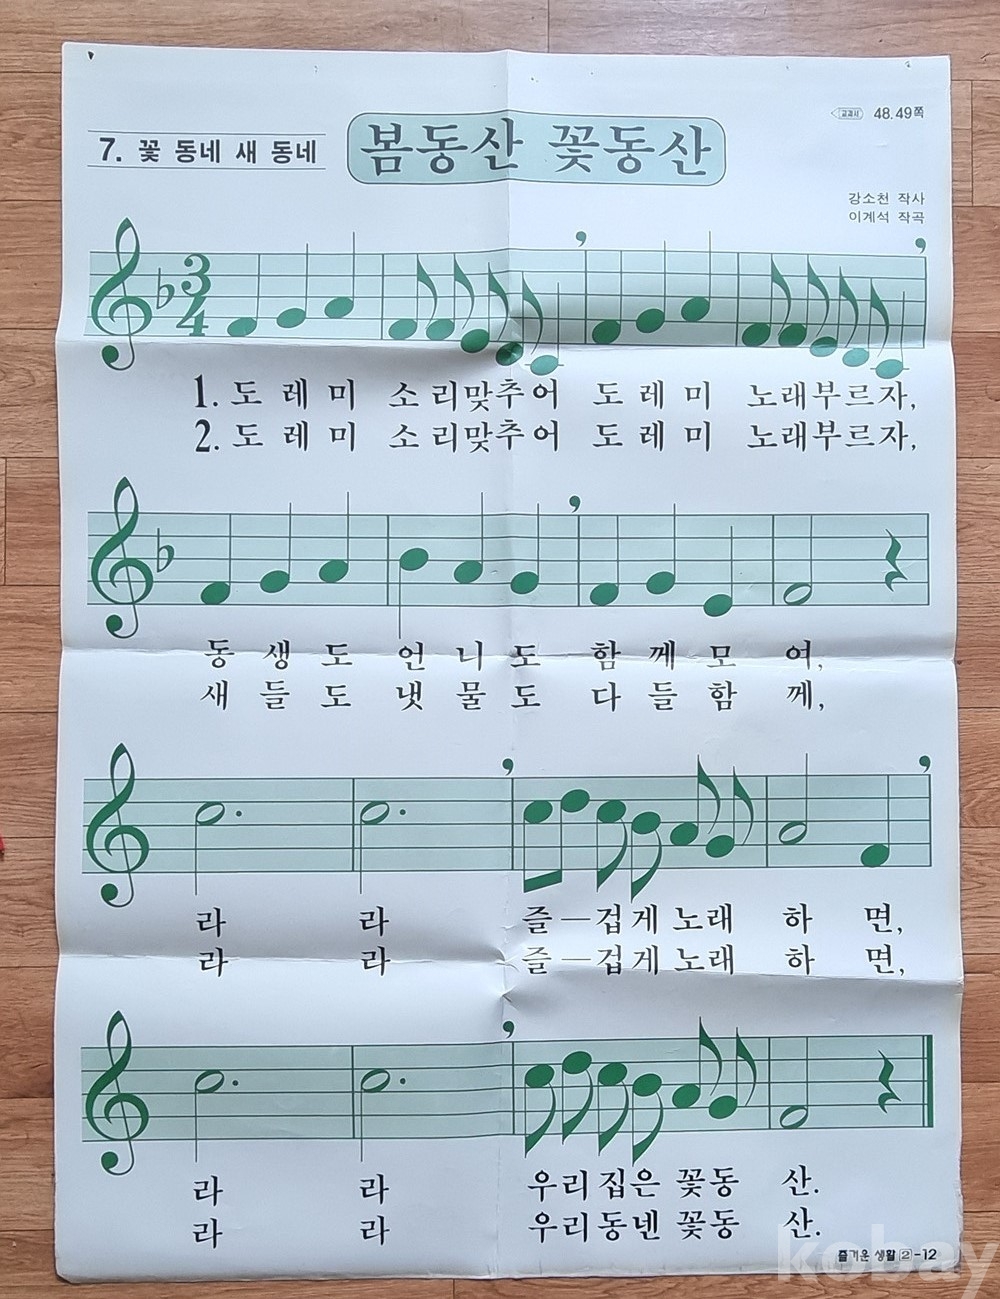 교과서 48.49쪽
7. 꽃 동네 새 동네
봄동산 꽃동산
강소천 작사
이계석 작곡
3
4
1. 도 레 미 소 리맞추어 도 레 미 노래부르자,
2. 도 레 미 소 리맞추어 도 레 미 노래부르자,
동 생 도 언 니 도 함 께 모 여,
새 들 도 냇 물 도 다 들 함 께,
라 라 즐—겁게 노래 하 면,
라 라 즐—겁게 노래 하 면,
라 라 우리 집은 꽃동 산.
라 라 우리동넨 꽃동 산.
즐거운 생활 2-12
kobay